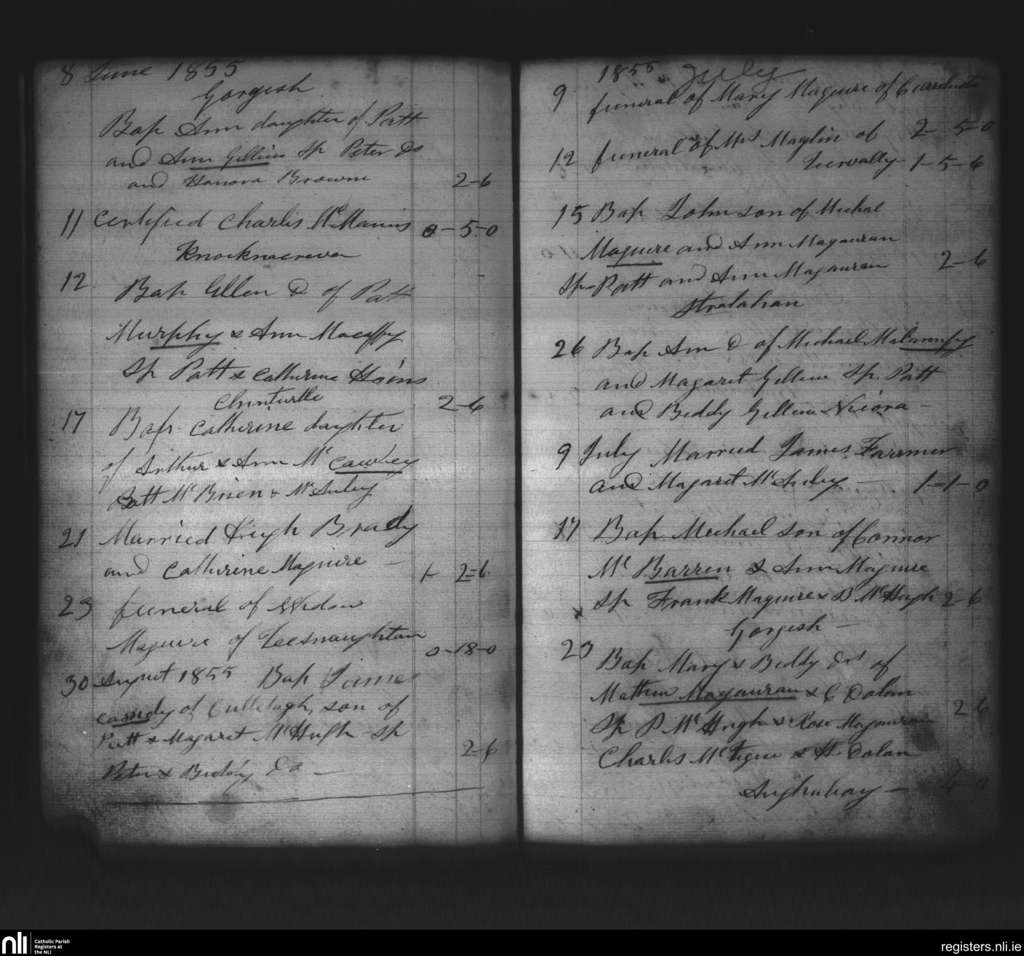 8 June 1855
Gorgesh
Bap Ann daughter of Patt
and Ann Gillins Sp Peter do
and Hanora Browne 2-6
11 Certified Charlis McManus 0-5-0
Knocknacreeva
12 Bap Ellen D of Patt
Murphy & Ann Macaffry
Sp Patt & Catherine
2-6
17 Bap Catherine daughter
of Arthur & Ann Mc Cawley
Patt McBrien & McAuley
21 Married Hugh Brady
and Catherine Maguire - 1-2-6
23 funeral of Widow
Maguire of 0-18-0
30 August 1855 Bap James
Casidy of son of
Patt & Magaret McHugh Sp
Peter & Biddy do - 2-6
1855 July
9 funeral of Mary Maguire of
2-5-0
12 funeral of Mrs of
1-5-6
15 Bap John son of Michal
Maguire and Ann Magauran
Sp Patt and Ann Magauran 2-6
Stralahan
26 Bap Ann D of Michael
and Magaret Gillin Sp. Patt
and Biddy Gillin
9 July Married James Farmer
and Magaret McAuley - 1-1-0
17 Bap Michael son of Connor
Mc Barren & Ann Maguire
Sp Frank Maguire & B McHugh 2-6
Gorgesh -
23 Bap Mary & Biddy drs of
Mathew Magauran & C Dolan
Sp P McHugh & Rose Magauran 2 6
Charlis McTigue & H. Dolan
-
nli Catholic Parish
Registers at
the NLI
registers.nli.ie